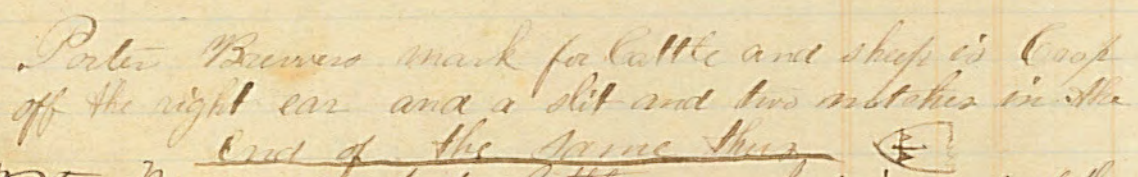 Porter Brewers mark for Cattle and sheep is Crop
off the right ear and a slit and two notches in the
end of the same thus